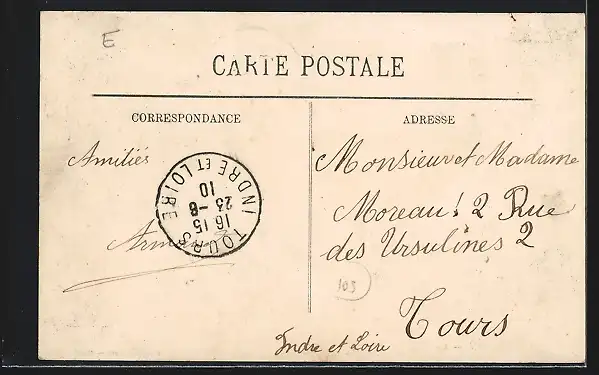 E
CARTE POSTALE
CORRESPONDANCE
ADRESSE
Amitiés
TOURS
INDRE ET LOIRE
16 15
23 - 8
10
Monsieur et Madame
Moreau! 2 Rue
des Ursulines 2
103
Tours
Indre et Loire